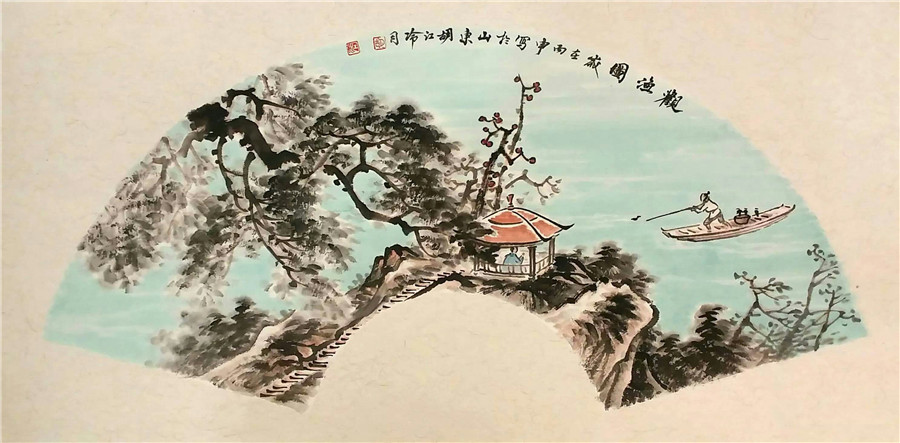 觀漁圖
歲在丙申寫於山東江月